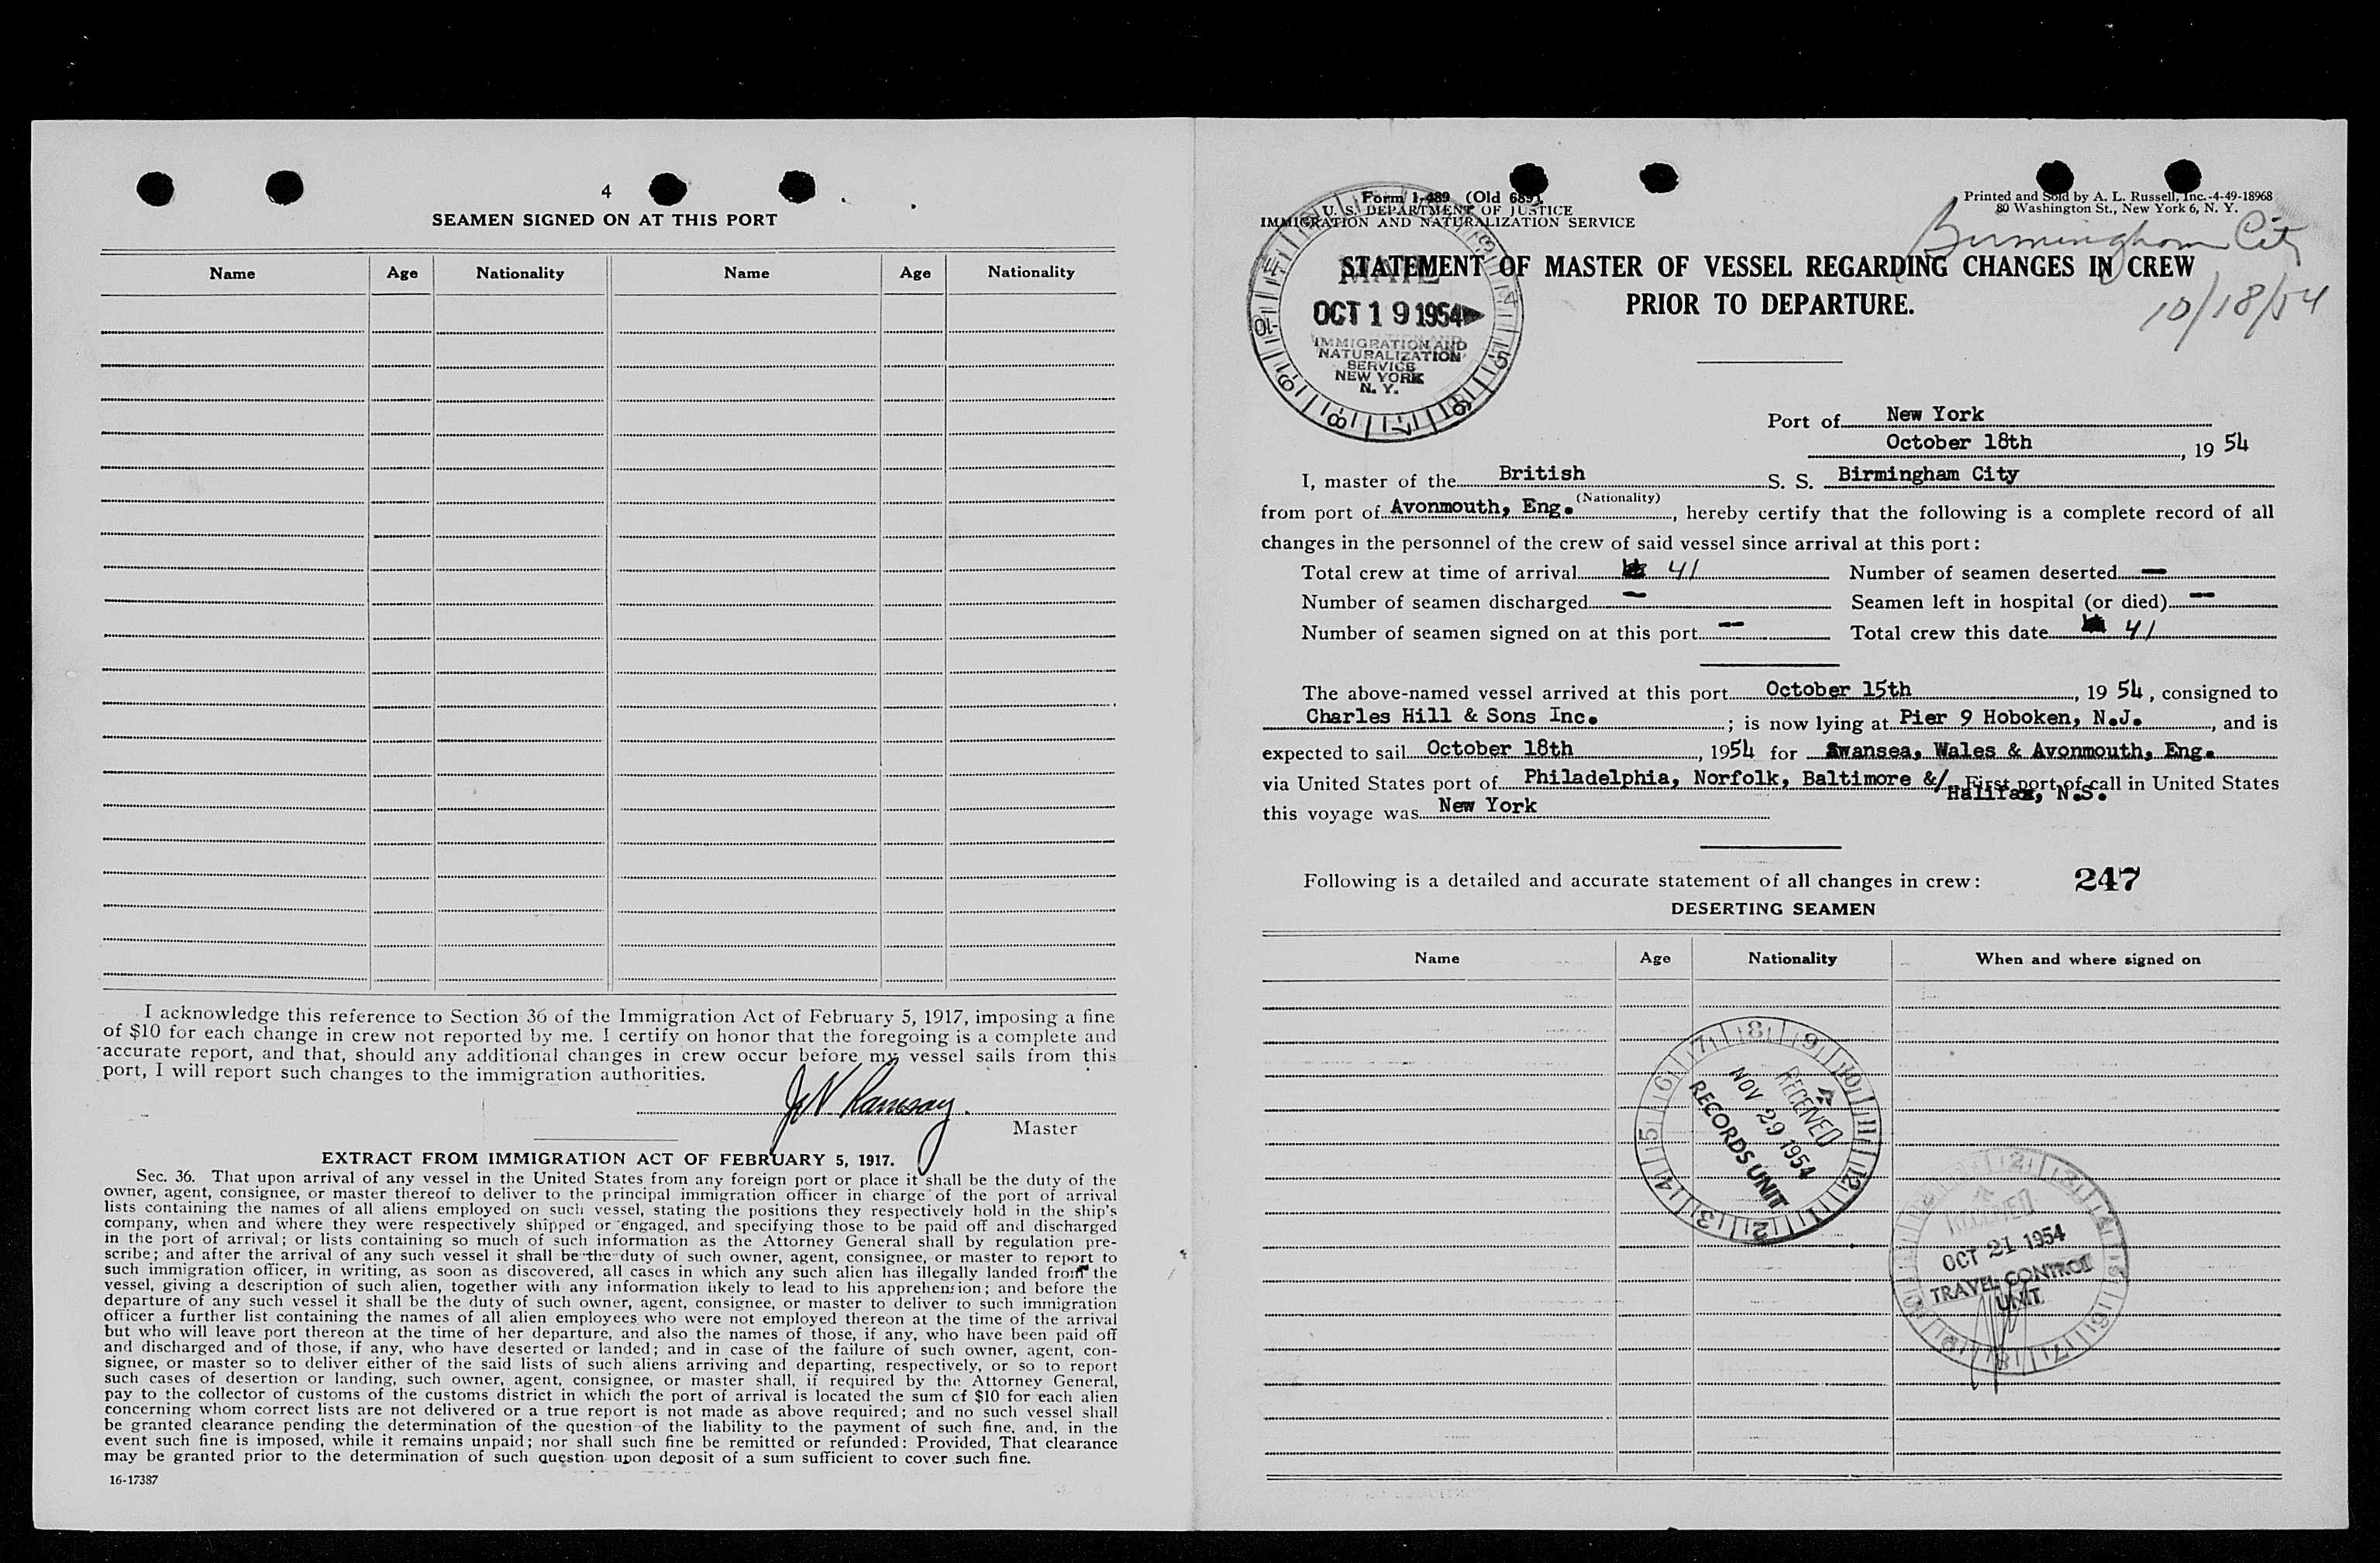 4
SEAMEN SIGNED ON AT THIS PORT
Name Age Nationality Name Age Nationality
I acknowledge this reference to Section 36 of the Immigration Act of February 5, 1917, imposing a fine
of $10 for each change in crew not reported by me. I certify on honor that the foregoing is a complete and
accurate report, and that, should any additional changes in crew occur before my vessel sails from this
port, I will report such changes to the immigration authorities.
Ramsay.
Master
EXTRACT FROM IMMIGRATION ACT OF FEBRUARY 5, 1917.
Sec. 36. That upon arrival of any vessel in the United States from any foreign port or place it shall be the duty of the
owner, agent, consignee, or master thereof to deliver to the principal immigration officer in charge of the port of arrival
lists containing the names of all aliens employed on such vessel, stating the positions they respectively hold in the ship's
company, when and where they were respectively shipped or engaged, and specifying those to be paid off and discharged
in the port of arrival; or lists containing so much of such information as the Attorney General shall by regulation pre-
scribe; and after the arrival of any such vessel it shall be the duty of such owner, agent, consignee, or master to report to
such immigration officer, in writing, as soon as discovered, all cases in which any such alien has illegally landed from the
vessel, giving a description of such alien, together with any information likely to lead to his apprehension; and before the
departure of any such vessel it shall be the duty of such owner, agent, consignee, or master to deliver to such immigration
officer a further list containing the names of all alien employees who were not employed thereon at the time of the arrival
but who will leave port thereon at the time of her departure, and also the names of those, if any, who have been paid off
and discharged and of those, if any, who have deserted or landed; and in case of the failure of such owner, agent, con-
signee, or master so to deliver either of the said lists of such aliens arriving and departing, respectively, or so to report
such cases of desertion or landing, such owner, agent, consignee, or master shall, if required by the Attorney General,
pay to the collector of customs of the customs district in which the port of arrival is located the sum of $10 for each alien
concerning whom correct lists are not delivered or a true report is not made as above required; and no such vessel shall
be granted clearance pending the determination of the question of the liability to the payment of such fine, and, in the
event such fine is imposed, while it remains unpaid; nor shall such fine be remitted or refunded: Provided, That clearance
may be granted prior to the determination of such question upon deposit of a sum sufficient to cover such fine.
16-17387
Form I-489 (Old 689)
U. S. DEPARTMENT OF JUSTICE
IMMIGRATION AND NATURALIZATION SERVICE
Printed and Sold by A. L. Russell, Inc.-4-49-18968
80 Washington St., New York 6, N. Y.
Birmingham City
10/18/54
STATEMENT OF MASTER OF VESSEL REGARDING CHANGES IN CREW
PRIOR TO DEPARTURE.
MAIL
OCT 19 1954
IMMIGRATION AND
NATURALIZATION
SERVICE
NEW YORK
N. Y.
Port of New York
October 18th, 19 54
I, master of the British S. S. Birmingham City
(Nationality)
from port of Avonmouth, Eng., hereby certify that the following is a complete record of all
changes in the personnel of the crew of said vessel since arrival at this port:
Total crew at time of arrival 41 Number of seamen deserted —
Number of seamen discharged — Seamen left in hospital (or died) —
Number of seamen signed on at this port — Total crew this date 41
The above-named vessel arrived at this port October 15th, 19 54, consigned to
Charles Hill & Sons Inc.; is now lying at Pier 9 Hoboken, N.J., and is
expected to sail October 18th, 1954 for Swansea, Wales & Avonmouth, Eng.
via United States port of Philadelphia, Norfolk, Baltimore &/ First port of call in United States
Halifax, N.S.
this voyage was New York
Following is a detailed and accurate statement of all changes in crew: 247
DESERTING SEAMEN
Name Age Nationality When and where signed on
RECEIVED
NOV 29 1954
RECORDS UNIT
RECEIVED
OCT 21 1954
TRAVEL CONTROL
UNIT